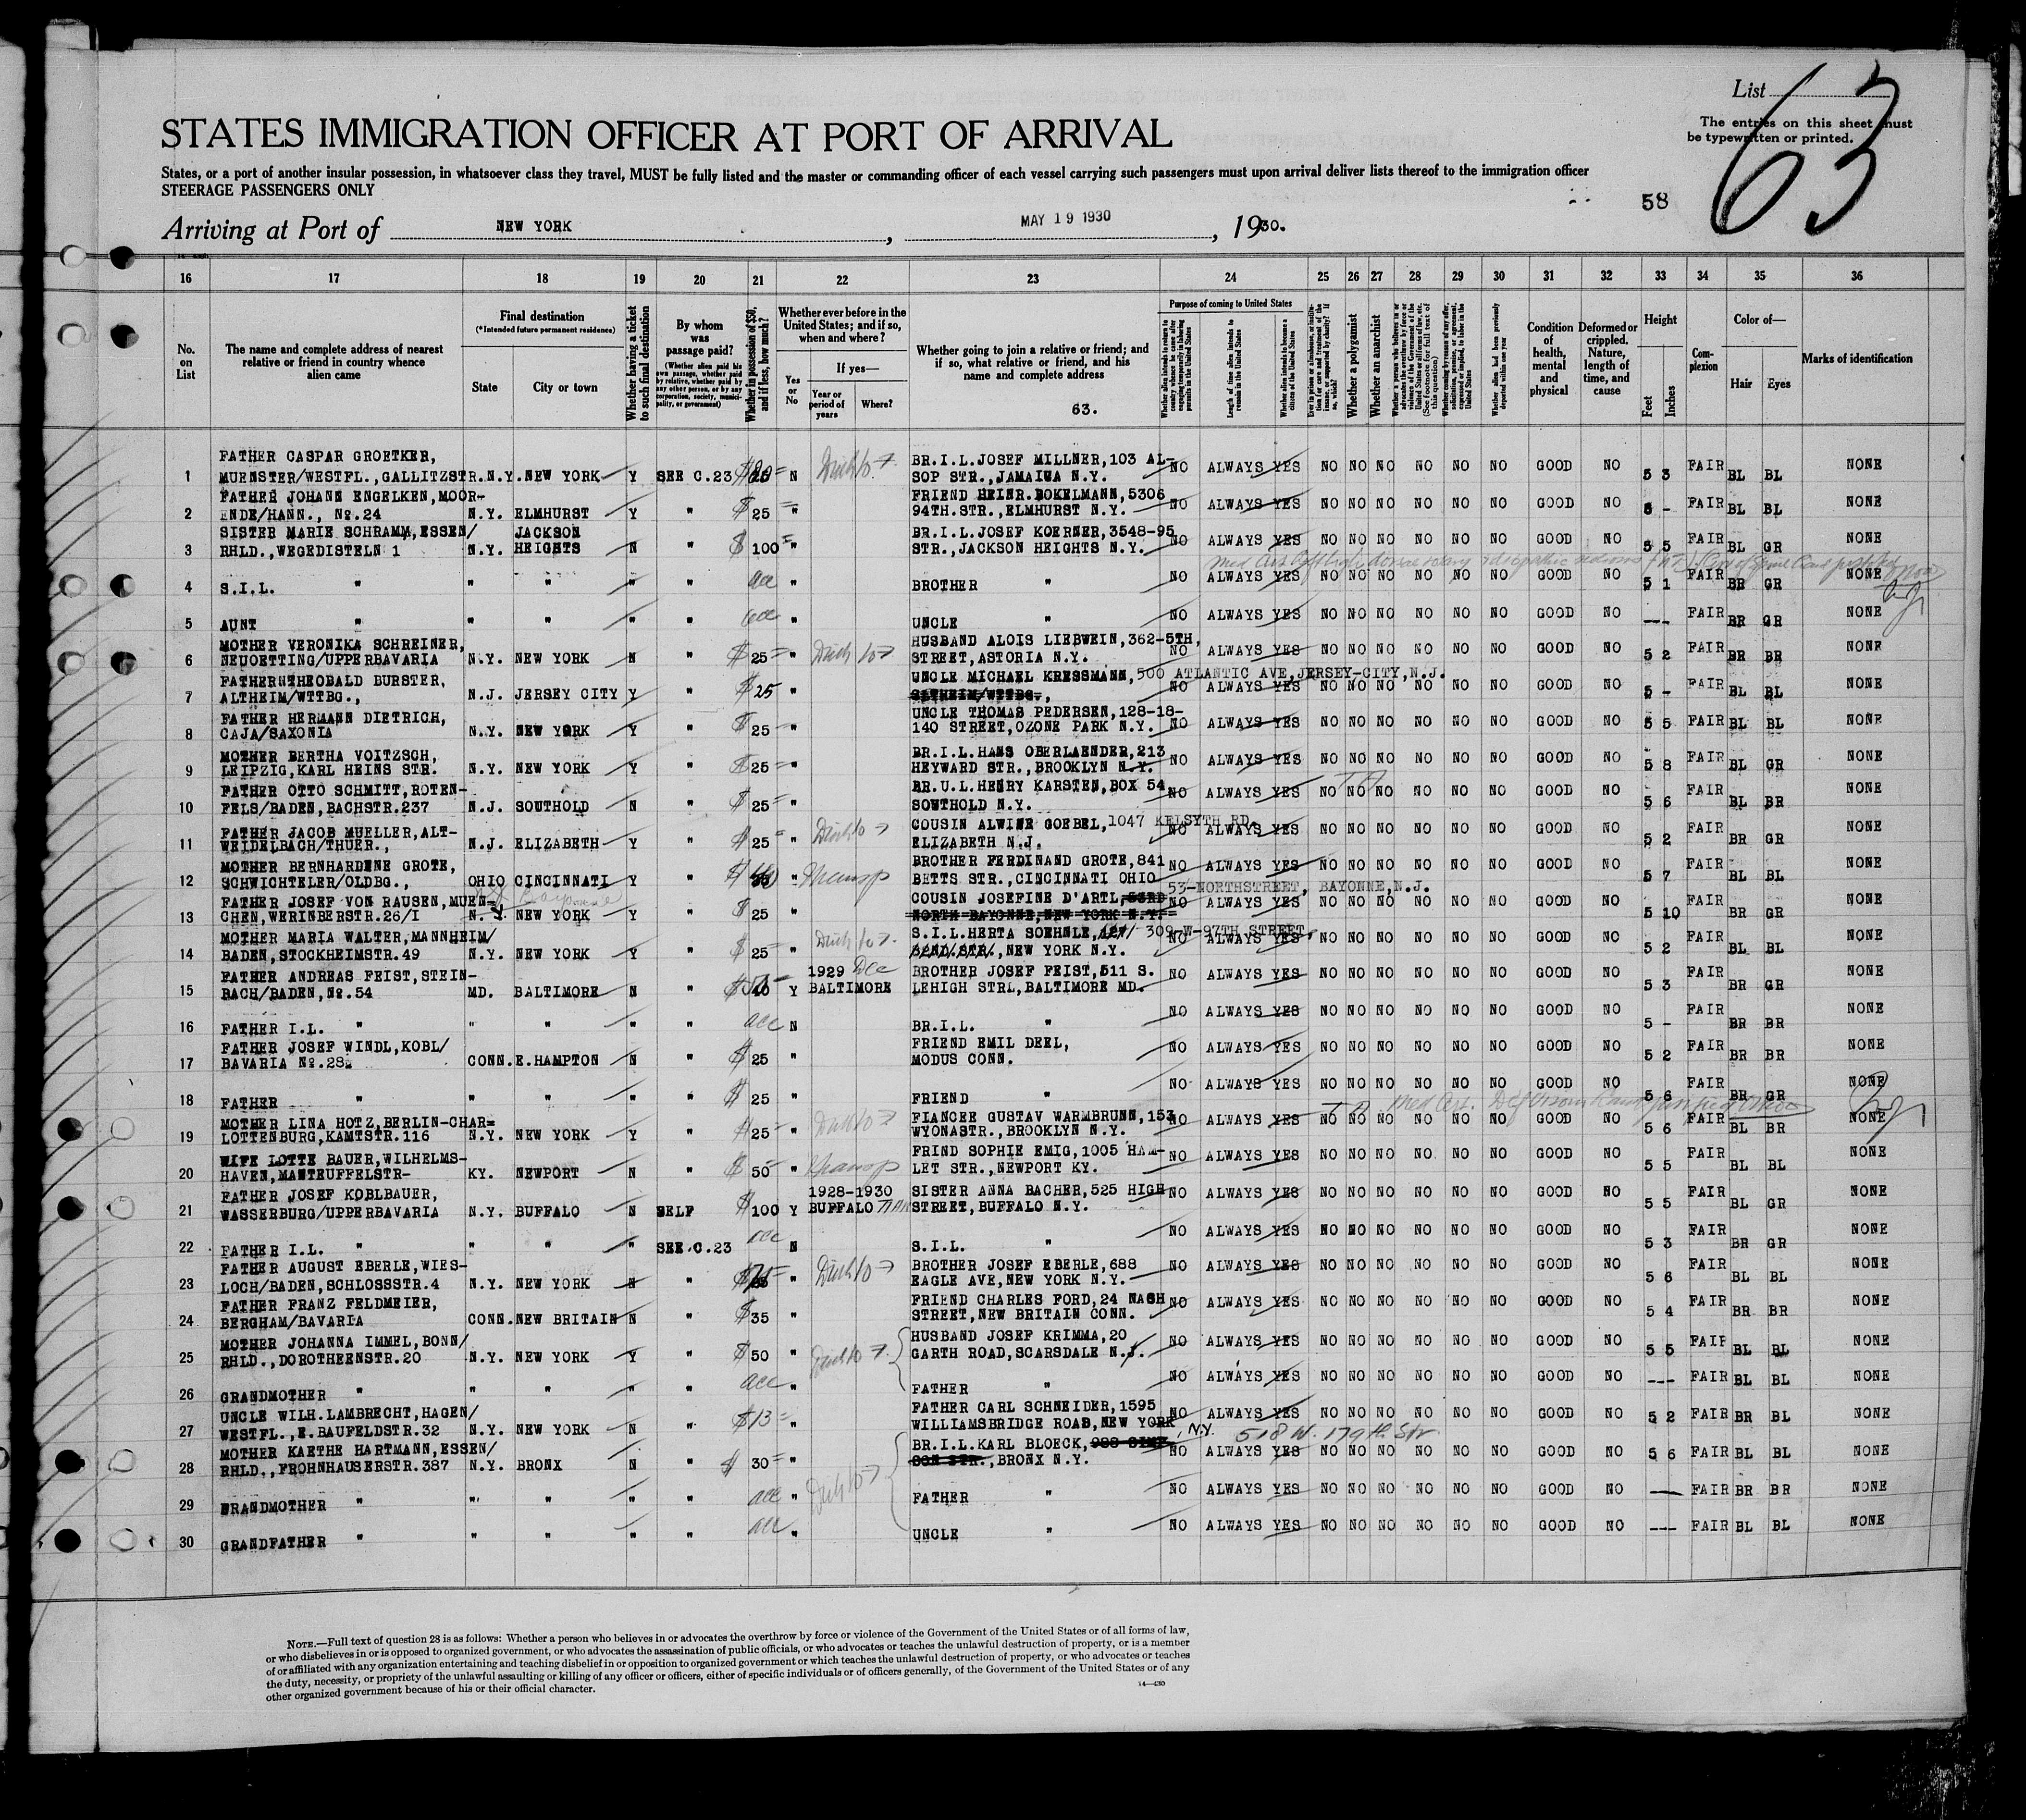 List
63
The entries on this sheet must
be typewritten or printed.
STATES IMMIGRATION OFFICER AT PORT OF ARRIVAL
States, or a port of another insular possession, in whatsoever class they travel, MUST be fully listed and the master or commanding officer of each vessel carrying such passengers must upon arrival deliver lists thereof to the immigration officer
STEERAGE PASSENGERS ONLY
58
Arriving at Port of NEW YORK, MAY 19 1930, 1930.
16 17 18 19 20 21 22 23 24 25 26 27 28 29 30 31 32 33 34 35 36
No. on List
The name and complete address of nearest relative or friend in country whence alien came
Final destination
(*Intended future permanent residence)
State
City or town
Whether having a ticket to such final destination
By whom was passage paid?
(Whether alien paid his own passage, whether paid by relative, whether paid by any other person, or by any corporation, society, municipality, or government)
Whether in possession of $50, and if less, how much?
Whether ever before in the United States; and if so, when and where?
Yes or No
If yes—
Year or period of years
Where?
Whether going to join a relative or friend; and if so, what relative or friend, and his name and complete address
63.
Purpose of coming to United States
Length of time alien intends to remain in the United States
Whether alien intends to become a citizen of the United States
Whether a polygamist
Whether an anarchist
(See footnote for full text of this question)
Condition of health, mental and physical
Deformed or crippled. Nature, length of time, and cause
Height
Feet
Inches
Complexion
Color of—
Hair
Eyes
Marks of identification
1 FATHER CASPAR GROETKER, MUENSTER/WESTFL.,GALLITZSTR. N.Y. NEW YORK Y SEE C.23 N BR.I.L.JOSEF MILLNER,103 AL- SOP STR.,JAMAICA N.Y. NO ALWAYS YES NO NO NO NO NO NO GOOD NO 5 3 FAIR BL BL NONE
2 FATHER JOHANN ENGELKEN,MOOR- ENDE/HANN., No.24 N.Y. ELMHURST Y " $25 " FRIEND HEINR.BOKELMANN,5306 94TH.STR.,ELMHURST N.Y. NO ALWAYS YES NO NO NO NO NO NO GOOD NO - FAIR BL BL NONE
3 SISTER MARIE SCHRAMM,ESSEN/ RHLD.,WEGEDISTELN 1 N.Y. JACKSON HEIGHTS N " $100 " BR.I.L.JOSEF KOERNER,3548-95 STR.,JACKSON HEIGHTS N.Y. NO ALWAYS YES NO NO NO NO NO NO GOOD NO 5 5 FAIR BL GR NONE
4 S.I.L. " " " " " acc " BROTHER " NO ALWAYS YES NO NO NO NO NO NO GOOD NO 5 1 FAIR BR GR NONE
5 AUNT " " " " " acc " UNCLE " NO ALWAYS YES NO NO NO NO NO NO GOOD NO --- FAIR BR GR NONE
6 MOTHER VERONIKA SCHREINER, NEUOETTING/UPPERBAVARIA N.Y. NEW YORK N " $25 " HUSBAND ALOIS LIEBWEIN,362-5TH, STREET,ASTORIA N.Y. NO ALWAYS YES NO NO NO NO NO NO GOOD NO 5 2 FAIR BR BR NONE
7 FATHERNTHEOBALD BURSTER, ALTHEIM/WTTBG., N.J. JERSEY CITY Y " $25 " UNCLE MICHAEL KRESSMANN,500 ATLANTIC AVE,JERSEY-CITY,N.J. ALTHEIM/WTTBG., NO ALWAYS YES NO NO NO NO NO NO GOOD NO 5 - FAIR BL BL NONE
8 FATHER HERMANN DIETRICH, CAJA/SAXONIA N.Y. NEW YORK Y " $25 " UNCLE THOMAS PEDERSEN,128-18- 140 STREET,OZONE PARK N.Y. NO ALWAYS YES NO NO NO NO NO NO GOOD NO 5 5 FAIR BL BL NONE
9 MOTHER BERTHA VOITZSCH, LEIPZIG,KARL HEINS STR. N.Y. NEW YORK Y " $25 " BR.I.L.HANS OBERLAENDER,213 HEYWARD STR.,BROOKLYN N.Y. NO ALWAYS YES NO NO NO NO NO NO GOOD NO 5 8 FAIR BL GR NONE
10 FATHER OTTO SCHMITT,ROTEN- FELS/BADEN,BACHSTR.237 N.J. SOUTHOLD N " $25 " BR.U.L.HENRY KARSTEN,BOX 54 SOUTHOLD N.Y. NO ALWAYS YES NO NO NO NO NO NO GOOD NO 5 6 FAIR BL BR NONE
11 FATHER JACOB MUELLER,ALT- WEIDELBACH/THUER., N.J. ELIZABETH Y " $25 " COUSIN ALWINE GOEBEL,1047 KELSYTH RD. ELIZABETH N.J. NO ALWAYS YES NO NO NO NO NO NO GOOD NO 5 2 FAIR BR GR NONE
12 MOTHER BERNHARDENE GROTE, SCHWICHTELER/OLDBG., OHIO CINCINNATI Y " " BROTHER FERDINAND GROTE,841 BETTS STR.,CINCINNATI OHIO NO ALWAYS YES NO NO NO NO NO NO GOOD NO 5 7 FAIR BL BL NONE
13 FATHER JOSEF VON RAUSEN,MUEN- CHEN,WERINBERSTR.26/I N.Y. NEW YORK Bayonne Y " $25 " 53-NORTHSTREET, BAYONNE,N.J. COUSIN JOSEFINE D'ARTL,53RD NORTH BAYONNE,NEW YORK N.Y. NO ALWAYS YES NO NO NO NO NO NO GOOD NO 5 10 FAIR BR GR NONE
14 MOTHER MARIA WALTER,MANNHEIM/ BADEN,STOCKHEIMSTR.49 N.Y. NEW YORK Y " $25 " S.I.L.HERTA SOEHNLE, 309-W-97TH STREET, NEW YORK N.Y. NO ALWAYS YES NO NO NO NO NO NO GOOD NO 5 2 FAIR BL BL NONE
15 FATHER ANDREAS FEIST,STEIN- BACH/BADEN,No.54 MD. BALTIMORE N " Y 1929 Dec BALTIMORE BROTHER JOSEF FEIST,511 S. LEHIGH STRL,BALTIMORE MD. NO ALWAYS YES NO NO NO NO NO NO GOOD NO 5 3 FAIR BR GR NONE
16 FATHER I.L. " " " " " acc N BR.I.L. " NO ALWAYS YES NO NO NO NO NO NO GOOD NO 5 - FAIR BR BR NONE
17 FATHER JOSEF WINDL,KOBL/ BAVARIA No.28 CONN. E.HAMPTON N " $25 " FRIEND EMIL DEEL, MODUS CONN. NO ALWAYS YES NO NO NO NO NO NO GOOD NO 5 2 FAIR BR BR NONE
18 FATHER " " " " " $25 " FRIEND " NO ALWAYS YES NO NO NO NO NO NO GOOD NO 5 6 FAIR BR GR NONE
19 MOTHER LINA HOTZ,BERLIN-CHAR= LOTTENBURG,KAMTSTR.116 N.Y. NEW YORK Y " $25 " FIANCEE GUSTAV WARMBRUNN,153 WYONASTR.,BROOKLYN N.Y. NO ALWAYS YES NO NO NO NO NO NO GOOD NO 5 6 FAIR BL BR NONE
20 WIFE LOTTE BAUER,WILHELMS- HAVEN,MANTEUFFELSTR- KY. NEWPORT N " $50 " FRIND SOPHIE EMIG,1005 HAM- LET STR.,NEWPORT KY. NO ALWAYS YES NO NO NO NO NO NO GOOD NO 5 5 FAIR BL BL NONE
21 FATHER JOSEF KOBLBAUER, WASSERBURG/UPPERBAVARIA N.Y. BUFFALO N SELF $100 Y 1928-1930 BUFFALO SISTER ANNA BACHER,525 HIGH STREET,BUFFALO N.Y. NO ALWAYS YES NO NO NO NO NO NO GOOD NO 5 5 FAIR BL GR NONE
22 FATHER I.L. " " " " SEE C.23 acc N S.I.L. " NO ALWAYS YES NO NO NO NO NO NO GOOD NO 5 3 FAIR BR GR NONE
23 FATHER AUGUST EBERLE,WIES- LOCH/BADEN,SCHLOSSSTR.4 N.Y. NEW YORK N " " BROTHER JOSEF EBERLE,688 EAGLE AVE,NEW YORK N.Y. NO ALWAYS YES NO NO NO NO NO NO GOOD NO 5 6 FAIR BL BL NONE
24 FATHER FRANZ FELDMEIER, BERGHAM/BAVARIA CONN. NEW BRITAIN N " $35 " FRIEND CHARLES FORD,24 NASH STREET,NEW BRITAIN CONN. NO ALWAYS YES NO NO NO NO NO NO GOOD NO 5 4 FAIR BR BR NONE
25 MOTHER JOHANNA IMMEL,BONN/ RHLD.,DOROTHEENSTR.20 N.Y. NEW YORK Y " $50 " HUSBAND JOSEF KRIMMA,20 GARTH ROAD,SCARSDALE N.J. NO ALWAYS YES NO NO NO NO NO NO GOOD NO 5 5 FAIR BL BL NONE
26 GRANDMOTHER " " " " " acc " FATHER " NO ALWAYS YES NO NO NO NO NO NO GOOD NO --- FAIR BL BL NONE
27 UNCLE WILH.LAMBRECHT,HAGEN/ WESTFL.,E.BAUFELDSTR.32 N.Y. NEW YORK N " $13 " FATHER CARL SCHNEIDER,1595 WILLIAMSBRIDGE ROAD,NEW YORK, N.Y. NO ALWAYS YES NO NO NO NO NO NO GOOD NO 5 2 FAIR BR BL NONE
28 MOTHER KAETHE HARTMANN,ESSEN/ RHLD.,FROHNHAUSERSTR.387 N.Y. BRONX N " $30 " BR.I.L.KARL BLOECK, 518 W. 179th Str BRONX N.Y. NO ALWAYS YES NO NO NO NO NO NO GOOD NO 5 6 FAIR BL BL NONE
29 GRANDMOTHER " " " " " acc " FATHER " NO ALWAYS YES NO NO NO NO NO NO GOOD NO --- FAIR BR BR NONE
30 GRANDFATHER " " " " " acc " UNCLE " NO ALWAYS YES NO NO NO NO NO NO GOOD NO --- FAIR BL BL NONE
NOTE.—Full text of question 28 is as follows: Whether a person who believes in or advocates the overthrow by force or violence of the Government of the United States or of all forms of law,
or who disbelieves in or is opposed to organized government, or who advocates the assassination of public officials, or who advocates or teaches the unlawful destruction of property, or is a member
of or affiliated with any organization entertaining and teaching disbelief in or opposition to organized government or which teaches the unlawful destruction of property, or who advocates or teaches
the duty, necessity, or propriety of the unlawful assaulting or killing of any officer or officers, either of specific individuals or of officers generally, of the Government of the United States or of any
other organized government because of his or their official character.
14—430